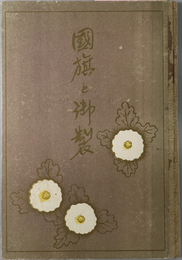 國旗と御製